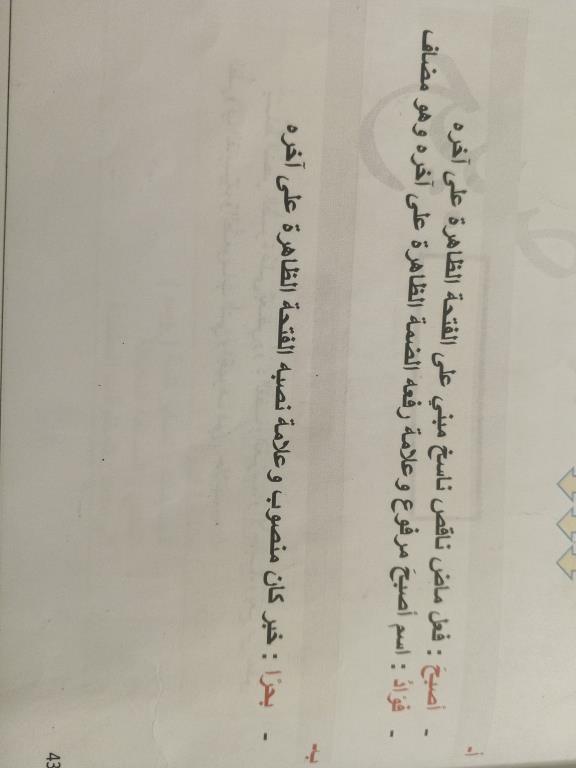 أ-
- أصبحَ : فعل ماض ناقص ناسخ مبني على الفتحة الظاهرة على آخره
- فؤادُ : اسم أصبحَ مرفوع وعلامة رفعه الضمة الظاهرة على آخره وهو مضاف
ب-
- بحرًا : خبر كان منصوب وعلامة نصبه الفتحة الظاهرة على آخره
43